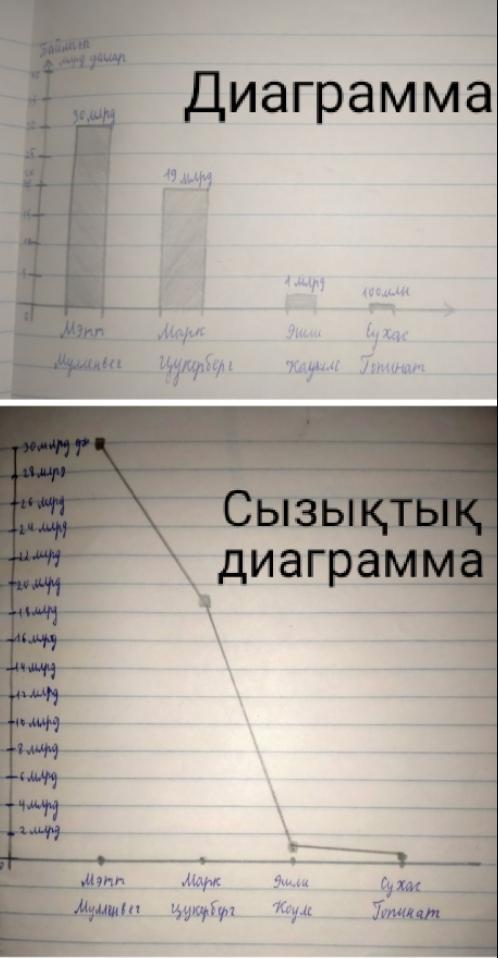 Байлығы
млрд доллар
Диаграмма
30 млрд
19 млрд
1 млрд
100 млн
5
0
Мэтт
Марк
Эшли
Сухас
Мулленвег
Цукерберг
Гопинат
30 млрд
28 млрд
26 млрд
24 млрд
22 млрд
20 млрд
18 млрд
16 млрд
14 млрд
12 млрд
10 млрд
8 млрд
6 млрд
4 млрд
2 млрд
0
Сызықтық
диаграмма
Мэтт
Марк
Эшли
Сухас
Мулленвег
Цукерберг
Коулс
Гопинат